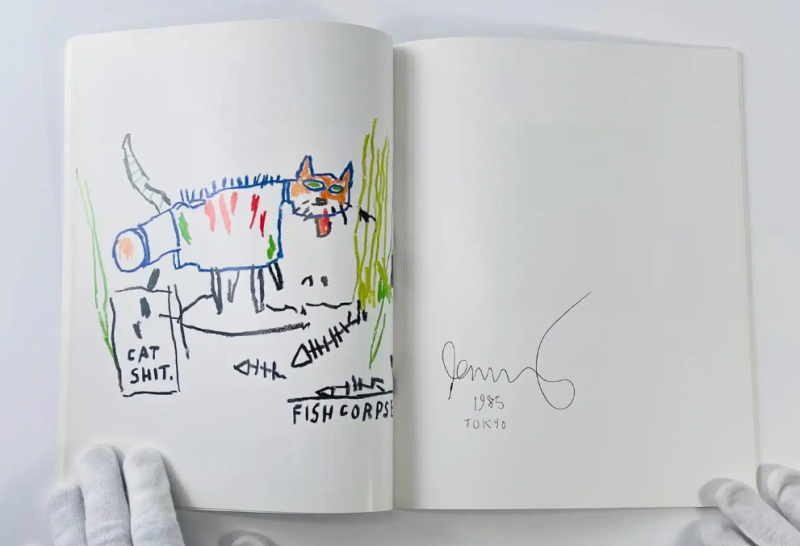 CAT
SHIT.
FISH CORPSE
1985
TOKYO